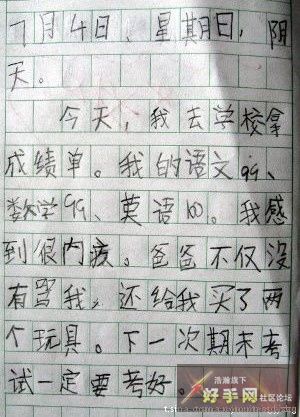 7月4日、星期日，阴
天。
今天，我去学校拿
成绩单。我的语文99、
数学99、英语100。我感
到很内疚。爸爸不仅没
有骂我，还给我买了两
个玩具。下一次期末考
试一定要考好。
浩瀚旗下
好手网 社区论坛